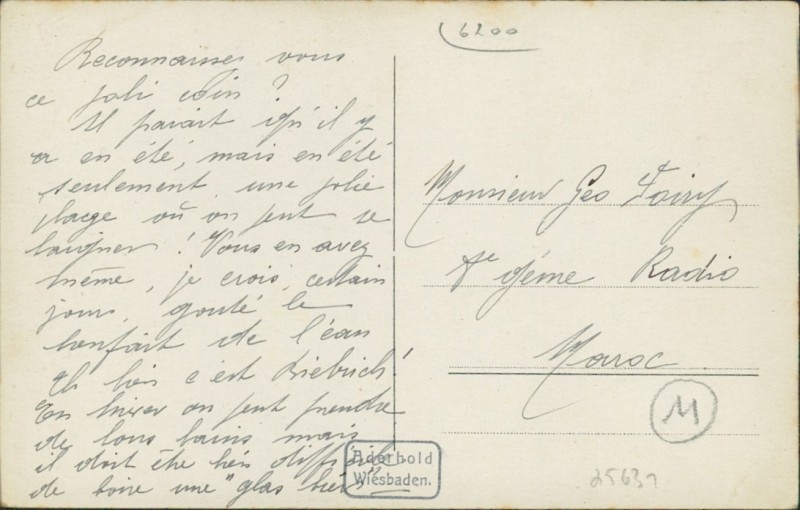 6200
Reconnaissez vous
ce joli coin ?
Il parait qu'il y
a en été, mais en été
seulement, une jolie
plage où on peut se
baigner ! Vous en avez
même, je crois, certain
jour, gouté le
bienfait de l'eau
Eh bien c'est Biebrich !
En hiver on peut prendre
de bons bains mais
il doit être très difficile
de boire une "glas bier"
Monsieur Géo
Radio
Maroc
M
Aderhold
Wiesbaden.
25631